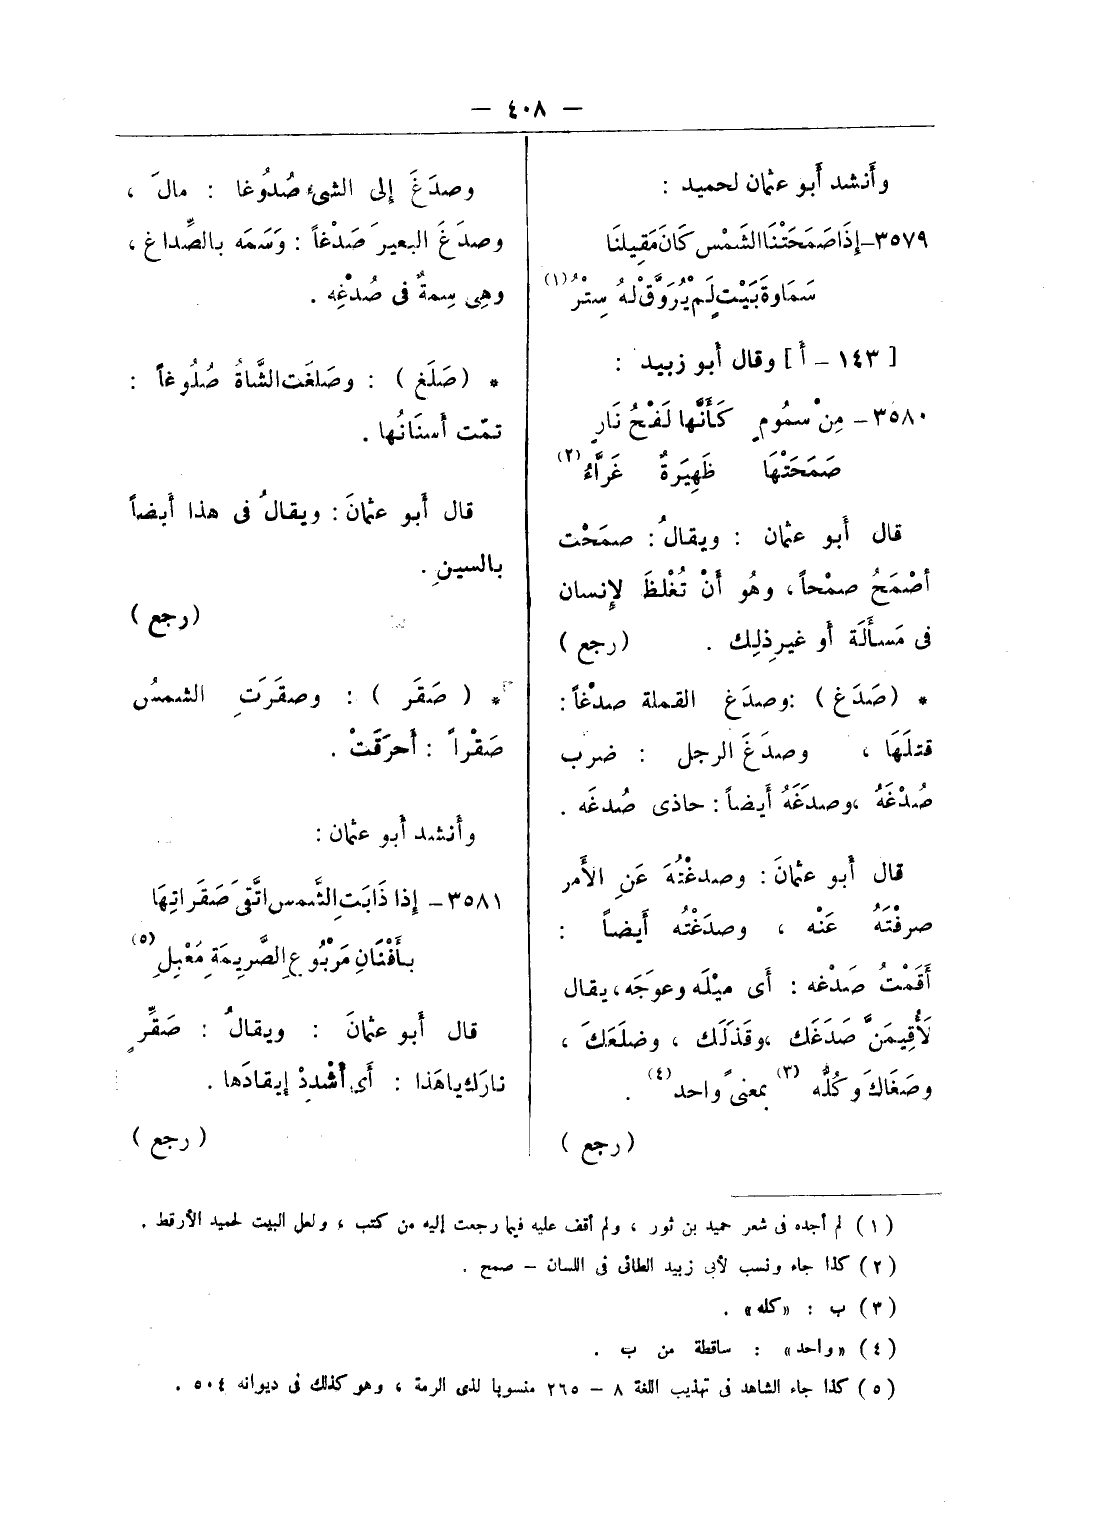 — ٤٠٨ —
وأَنشد أَبو عثمان لحميد :
٣٥٧٩ـ إِذَا صَمَحَتْنَا الشَّمْس كَانَ مَقِيلنَا
سَمَاوة بَيْت لَم يُرَوَّقْ لهُ سِتْرُ (١)
[ ١٤٣ ـ أ ] وقال أَبو زبيد :
٣٥٨٠ـ مِنْ سمُومٍ كَأَنَّها لَفْحُ نَارٍ
صَمَحَتْهَا ظَهِيَرةٌ غَرَّاءُ (٢)
قال أَبو عثمان : ويقالُ : صمَحْت
أَصْمَحُ صمْحاً ، وهُو أَنْ تُغْلِظَ لِإنسان
فى مَسأَلَة أَو غيرِ ذلِك . (رجع)
* (صَدَغ) : وصدَغ القملة صدْغاً :
قتلَهَا ، وصدَغَ الرجل : ضرب
صُدْغَهُ ، وصدَغَهُ أَيضاً : حاذى صُدغَه .
قال أَبو عثمانَ : وصدغْتُهُ عَنِ الأَمر
صرفْتَهُ عَنْه ، وصدَغْتُه أَيضاً :
أَقَمْتُ صَدْغه : أَى ميْلَه وعوَجَه ، يقال
لَأُقِيمَنَّ صَدَغَك ، وقَذَلَك ، وضلَعَكَ ،
وصَغَاكَ وكُلُّه (٣) بمعنىً واحد (٤) .
(رجع)
وصدَغَ إِلى الشىءِ صُدُوغا : مالَ ،
وصدَغَ البعيرَ صَدْغاً : وَسَمَه بالصِّداغ ،
وهِى سِمةٌ فى صُدْغِه .
* (صَلَغ) : وصَلغَت الشَّاةُ صُلُوغاً :
تمّت أَسنَانُها .
قال أَبو عثمانَ : ويقالُ فى هذا أَيضاً
بالسينِ .
(رجع)
* (صَقَر) : وصقَرَتِ الشمسُ
صَقْراً : أَحرَقَتْ .
وأَنشد أَبو عثمان :
٣٥٨١ـ إِذا ذَابَتِ الشَّمس اتَّقَى صَقَرَاتِهَا
بأَفْنَانِ مَرْبُوعِ الصَّرِيمَةِ مَعْبِلِ (٥)
قال أَبو عثمانَ : ويقالُ : صَقِّرْ
نارَك ياهَذا : أَى أَشْدِدْ إِيقادَها .
(رجع)
(١) لم أجده فى شعر حميد بن ثور ، ولم أقف عليه فيما رجعت إليه من كتب ، ولعل البيت لحميد الأرقط .
(٢) كذا جاء ونسب لأبى زبيد الطائى فى اللسان – صمح .
(٣) ب : «كله» .
(٤) «واحد» : ساقطة من ب .
(٥) كذا جاء الشاهد فى تهذيب اللغة ٨ – ٢٦٥ منسوبا لذى الرمة ، وهو كذلك فى ديوانه ٥٠٤ .